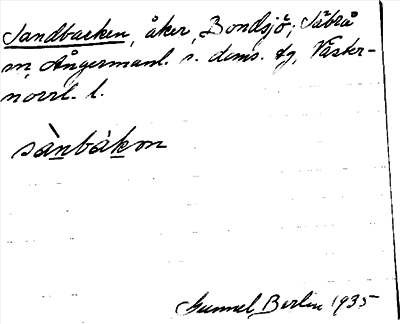 Sandbacken, åker, Bondsjö, Säbrå
sn, Ångermanl. s. doms. tg, Väster-
norrl. l.
sànbákon
Gunnel Berlin 1935